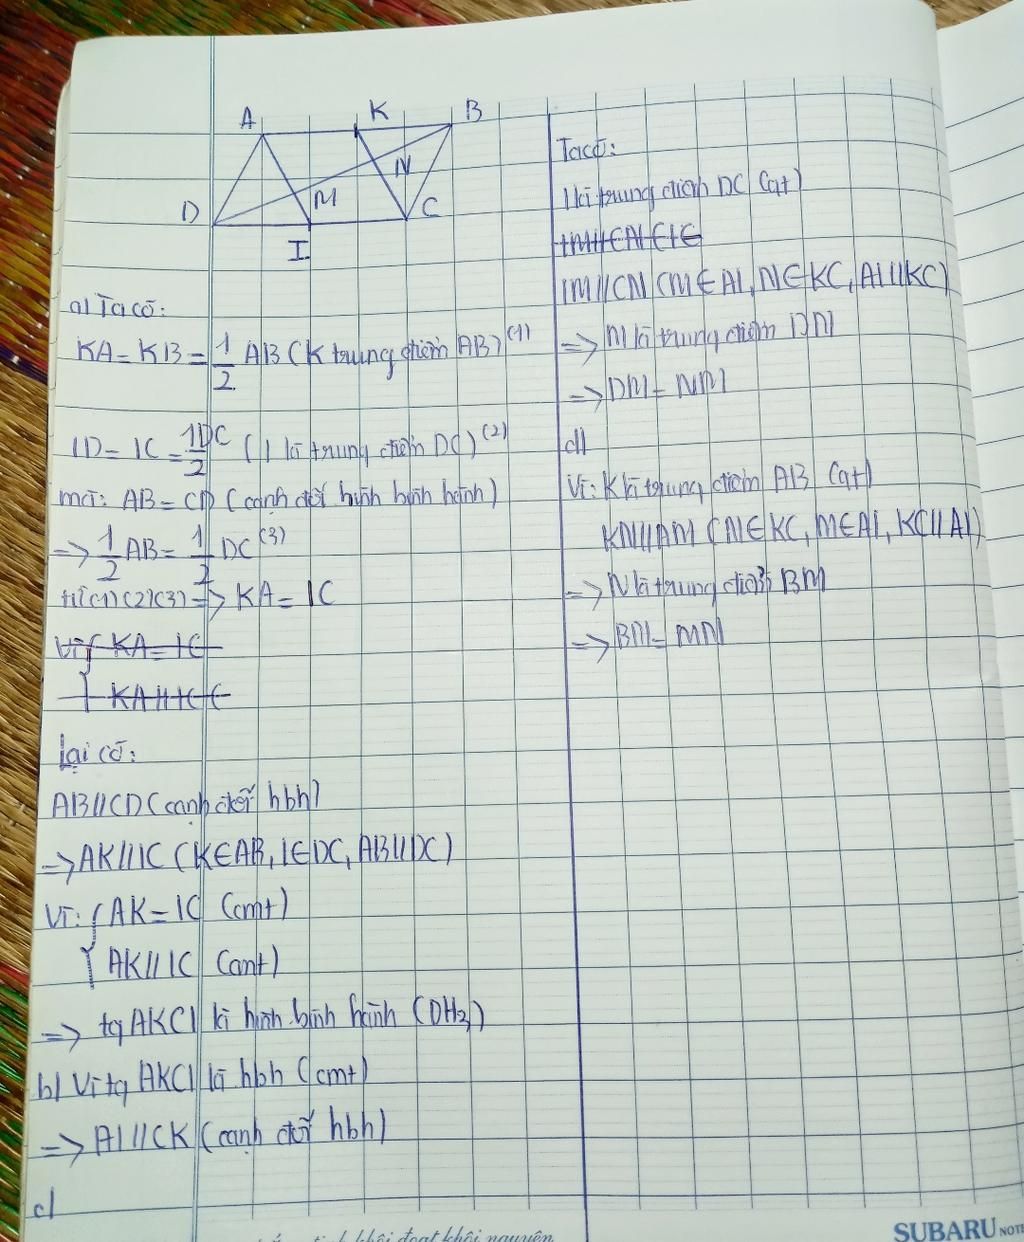 A K B
N
M
D C
I
a) Ta có:
KA = KB = 1/2 AB (K trung điểm AB) (1)
ID = IC = 1/2 DC (I là trung điểm DC) (2)
mà: AB = CD (cạnh đối hình bình hành)
=> 1/2 AB = 1/2 DC (3)
từ (1) (2) (3) => KA = IC
Vì { KA = IC
KA // IC
Lại có:
AB // CD (cạnh đối hbh)
=> AK // IC (K ∈ AB, I ∈ DC, AB // DC)
Vì: { AK = IC (cmt)
AK // IC (cmt)
=> tg AKCI là hình bình hành (DH3)
b) Vì tg AKCI là hbh (cmt)
=> AI // CK (cạnh đối hbh)
c)
Ta có:
I là trung điểm DC (gt)
IM // CN (M ∈ AI, N ∈ KC, AI // KC)
=> M là trung điểm DN
=> DM = NM
d)
Vì: K là trung điểm AB (gt)
KN // AM (N ∈ KC, M ∈ AI, KC // AI)
=> N là trung điểm BM
=> BN = MN
khôi đoạt khôi nguyên
SUBARU NOTE